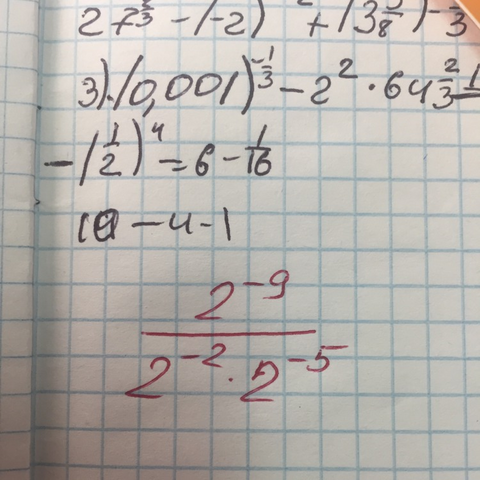 27^⅔ - (-2)⁻² + (3⅜)^-⅓
3). (0,001)^-⅓ - 2² · 64^⅔ - 1
- (½)⁴ = 6 - 1/16
10 - 4 - 1
2⁻⁹
2⁻² · 2⁻⁵